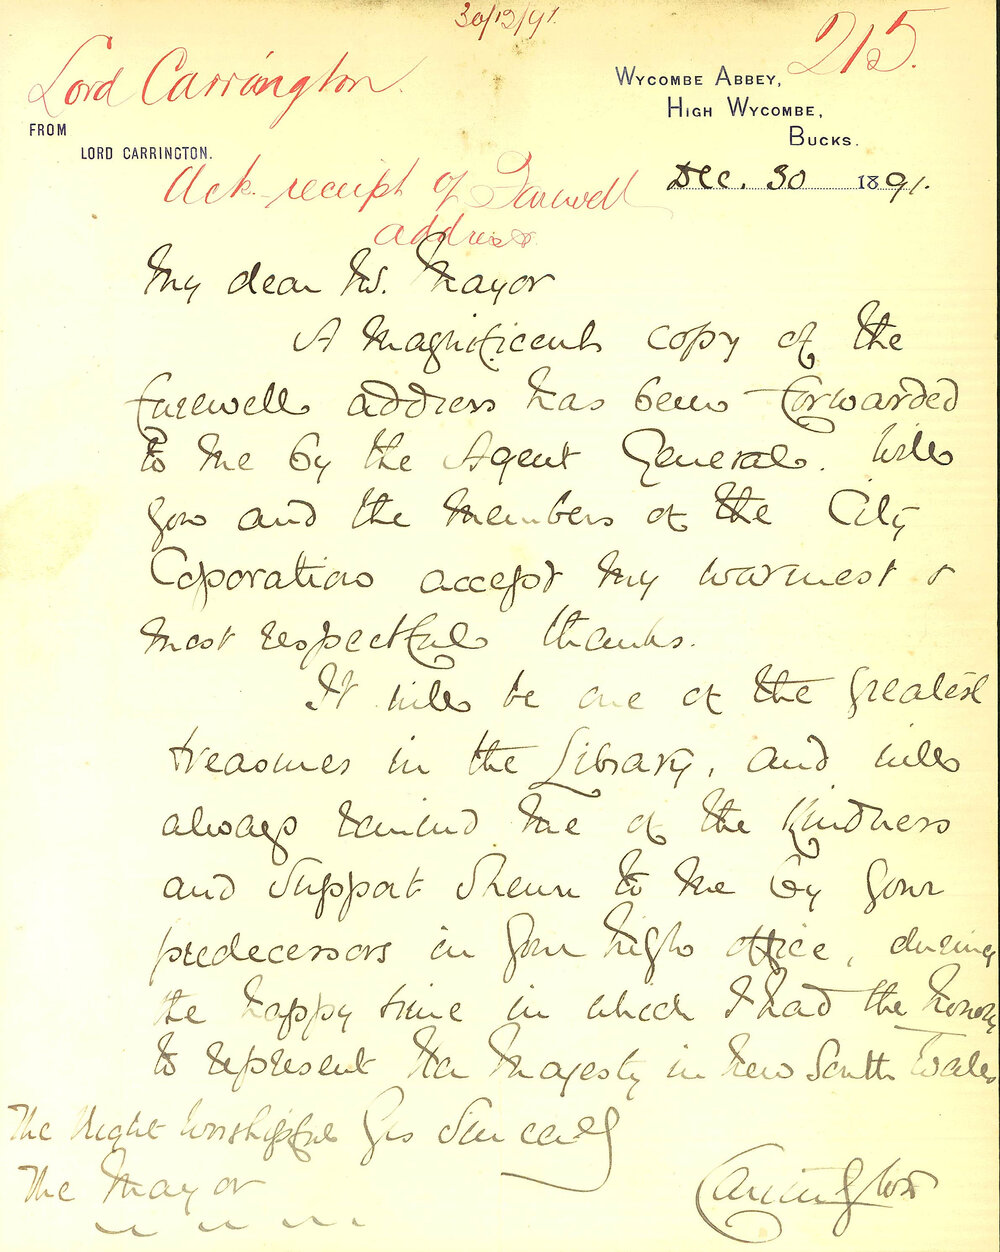 30/12/91.
215.
Lord Carrington.
WYCOMBE ABBEY,
HIGH WYCOMBE,
BUCKS.
FROM
LORD CARRINGTON.
Dec. 30 1891.
Ack. receipt of Farewell
address
My dear Mr. Mayor
A Magnificent copy of the
farewell address has been forwarded
to me by the Agent General. Will
you and the Members of the City
Coporation accept my warmest &
most respectful thanks.
It will be one of the greatest
treasures in the Library, and will
always remind me of the Kindness
and support shewn to me by your
predecessors in your high office, during
the happy time in which I had the honor
to represent Her Majesty in New South Wales
The Right Worshipful Yrs Sincerely
The Mayor
Carrington